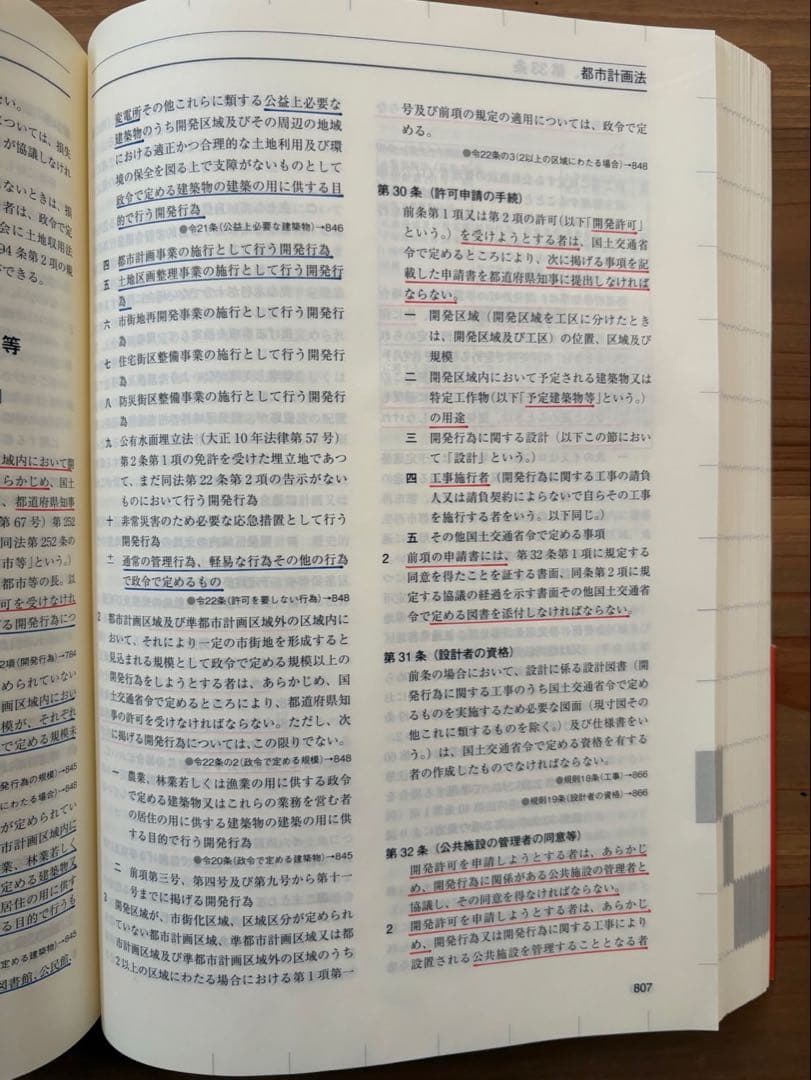 い。
については、損失
が協議しなけれ
ないときは、損
者は、政令で定
会に土地収用法
94 条第2項の規
ができる。
等
域内において開
らかじめ、国土
、都道府県知事
第 67 号）第 252
同法第 252 条の
市等」という。）
都市等の長。以
可を受けなけれ
る開発行為につ
2項（開発行為）→784
められていない
画区域内におい
模が、それぞれ
で定める規模未
発行為の規模）→845
にわたる場合）→848
が定められてい
計画区域内に
業、林業若しく
定める建築物又
居住の用に供す
る目的で行うも
定める建築物）→845
図書館、公民館、
都市計画法
変電所その他これらに類する公益上必要な
建築物のうち開発区域及びその周辺の地域
における適正かつ合理的な土地利用及び環
境の保全を図る上で支障がないものとして
政令で定める建築物の建築の用に供する目
的で行う開発行為
●令21条（公益上必要な建築物）→846
四 都市計画事業の施行として行う開発行為
五 土地区画整理事業の施行として行う開発行
為
六 市街地再開発事業の施行として行う開発行
為
七 住宅街区整備事業の施行として行う開発行
為
八 防災街区整備事業の施行として行う開発行
為
九 公有水面埋立法（大正 10 年法律第 57 号）
第2条第1項の免許を受けた埋立地であつ
て、まだ同法第 22 条第2項の告示がない
ものにおいて行う開発行為
十 非常災害のため必要な応急措置として行う
開発行為
十一 通常の管理行為、軽易な行為その他の行為
で政令で定めるもの
●令22条（許可を要しない行為）→848
2 都市計画区域及び準都市計画区域外の区域内に
おいて、それにより一定の市街地を形成すると
見込まれる規模として政令で定める規模以上の
開発行為をしようとする者は、あらかじめ、国
土交通省令で定めるところにより、都道府県知
事の許可を受けなければならない。ただし、次
に掲げる開発行為については、この限りでない。
●令22条の2（政令で定める規模）→848
一 農業、林業若しくは漁業の用に供する政令
で定める建築物又はこれらの業務を営む者
の居住の用に供する建築物の建築の用に供
する目的で行う開発行為
●令20条（政令で定める建築物）→845
二 前項第三号、第四号及び第九号から第十一
号までに掲げる開発行為
3 開発区域が、市街化区域、区域区分が定められ
ていない都市計画区域、準都市計画区域又は都
市計画区域及び準都市計画区域外の区域のうち
2以上の区域にわたる場合における第1項第一
号及び前項の規定の適用については、政令で定
める。
●令22条の3（2以上の区域にわたる場合）→848
第 30 条（許可申請の手続）
前条第1項又は第2項の許可（以下「開発許可」
という。）を受けようとする者は、国土交通省
令で定めるところにより、次に掲げる事項を記
載した申請書を都道府県知事に提出しなければ
ならない。
一 開発区域（開発区域を工区に分けたとき
は、開発区域及び工区）の位置、区域及び
規模
二 開発区域内において予定される建築物又は
特定工作物（以下「予定建築物等」という。）
の用途
三 開発行為に関する設計（以下この節におい
て「設計」という。）
四 工事施行者（開発行為に関する工事の請負
人又は請負契約によらないで自らその工事
を施行する者をいう。以下同じ。）
五 その他国土交通省令で定める事項
2 前項の申請書には、第 32 条第1項に規定する
同意を得たことを証する書面、同条第2項に規
定する協議の経過を示す書面その他国土交通省
令で定める図書を添付しなければならない。
第 31 条（設計者の資格）
前条の場合において、設計に係る設計図書（開
発行為に関する工事のうち国土交通省令で定め
るものを実施するため必要な図面（現寸図その
他これに類するものを除く。）及び仕様書をい
う。）は、国土交通省令で定める資格を有する
者の作成したものでなければならない。
●規則18条（工事）→866
●規則19条（設計者の資格）→866
第 32 条（公共施設の管理者の同意等）
開発許可を申請しようとする者は、あらかじ
め、開発行為に関係がある公共施設の管理者と
協議し、その同意を得なければならない。
2 開発許可を申請しようとする者は、あらかじ
め、開発行為又は開発行為に関する工事により
設置される公共施設を管理することとなる者
807